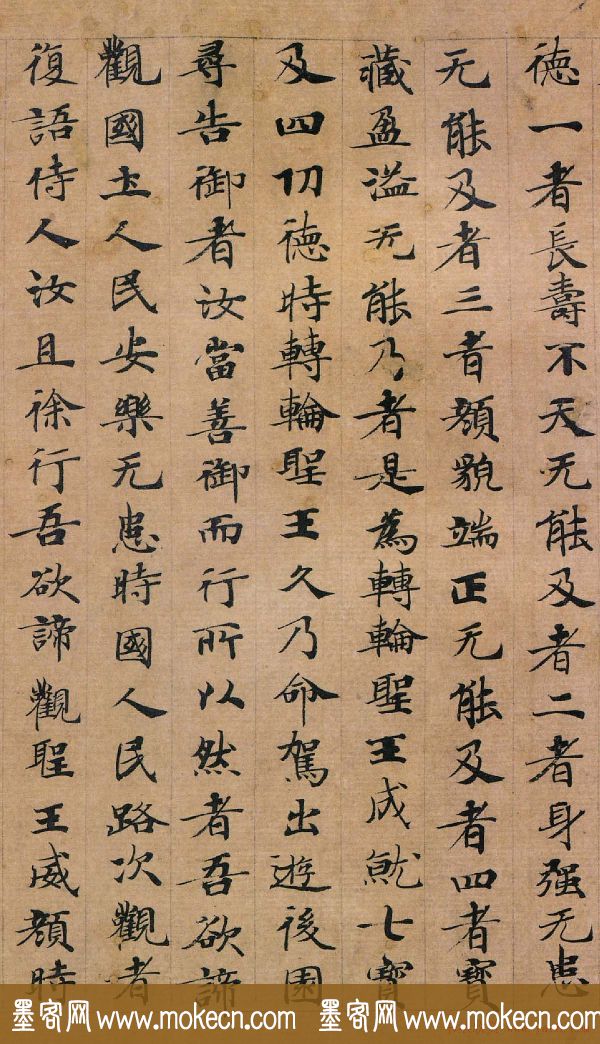 德一者長壽不夭无能及者二者身强无患
无能及者三者顏貌端正无能及者四者寶
藏盈溢无能乃者是為轉輪聖王成就七寶
及四功德時轉輪聖王久乃命駕出遊後園
尋告御者汝當善御而行所以然者吾欲諦
觀國土人民安樂无患時國人民路次觀者
復語侍人汝且徐行吾欲諦觀聖王威顏時
墨客网 www.mokecn.com 墨客网 www.mokecn.com